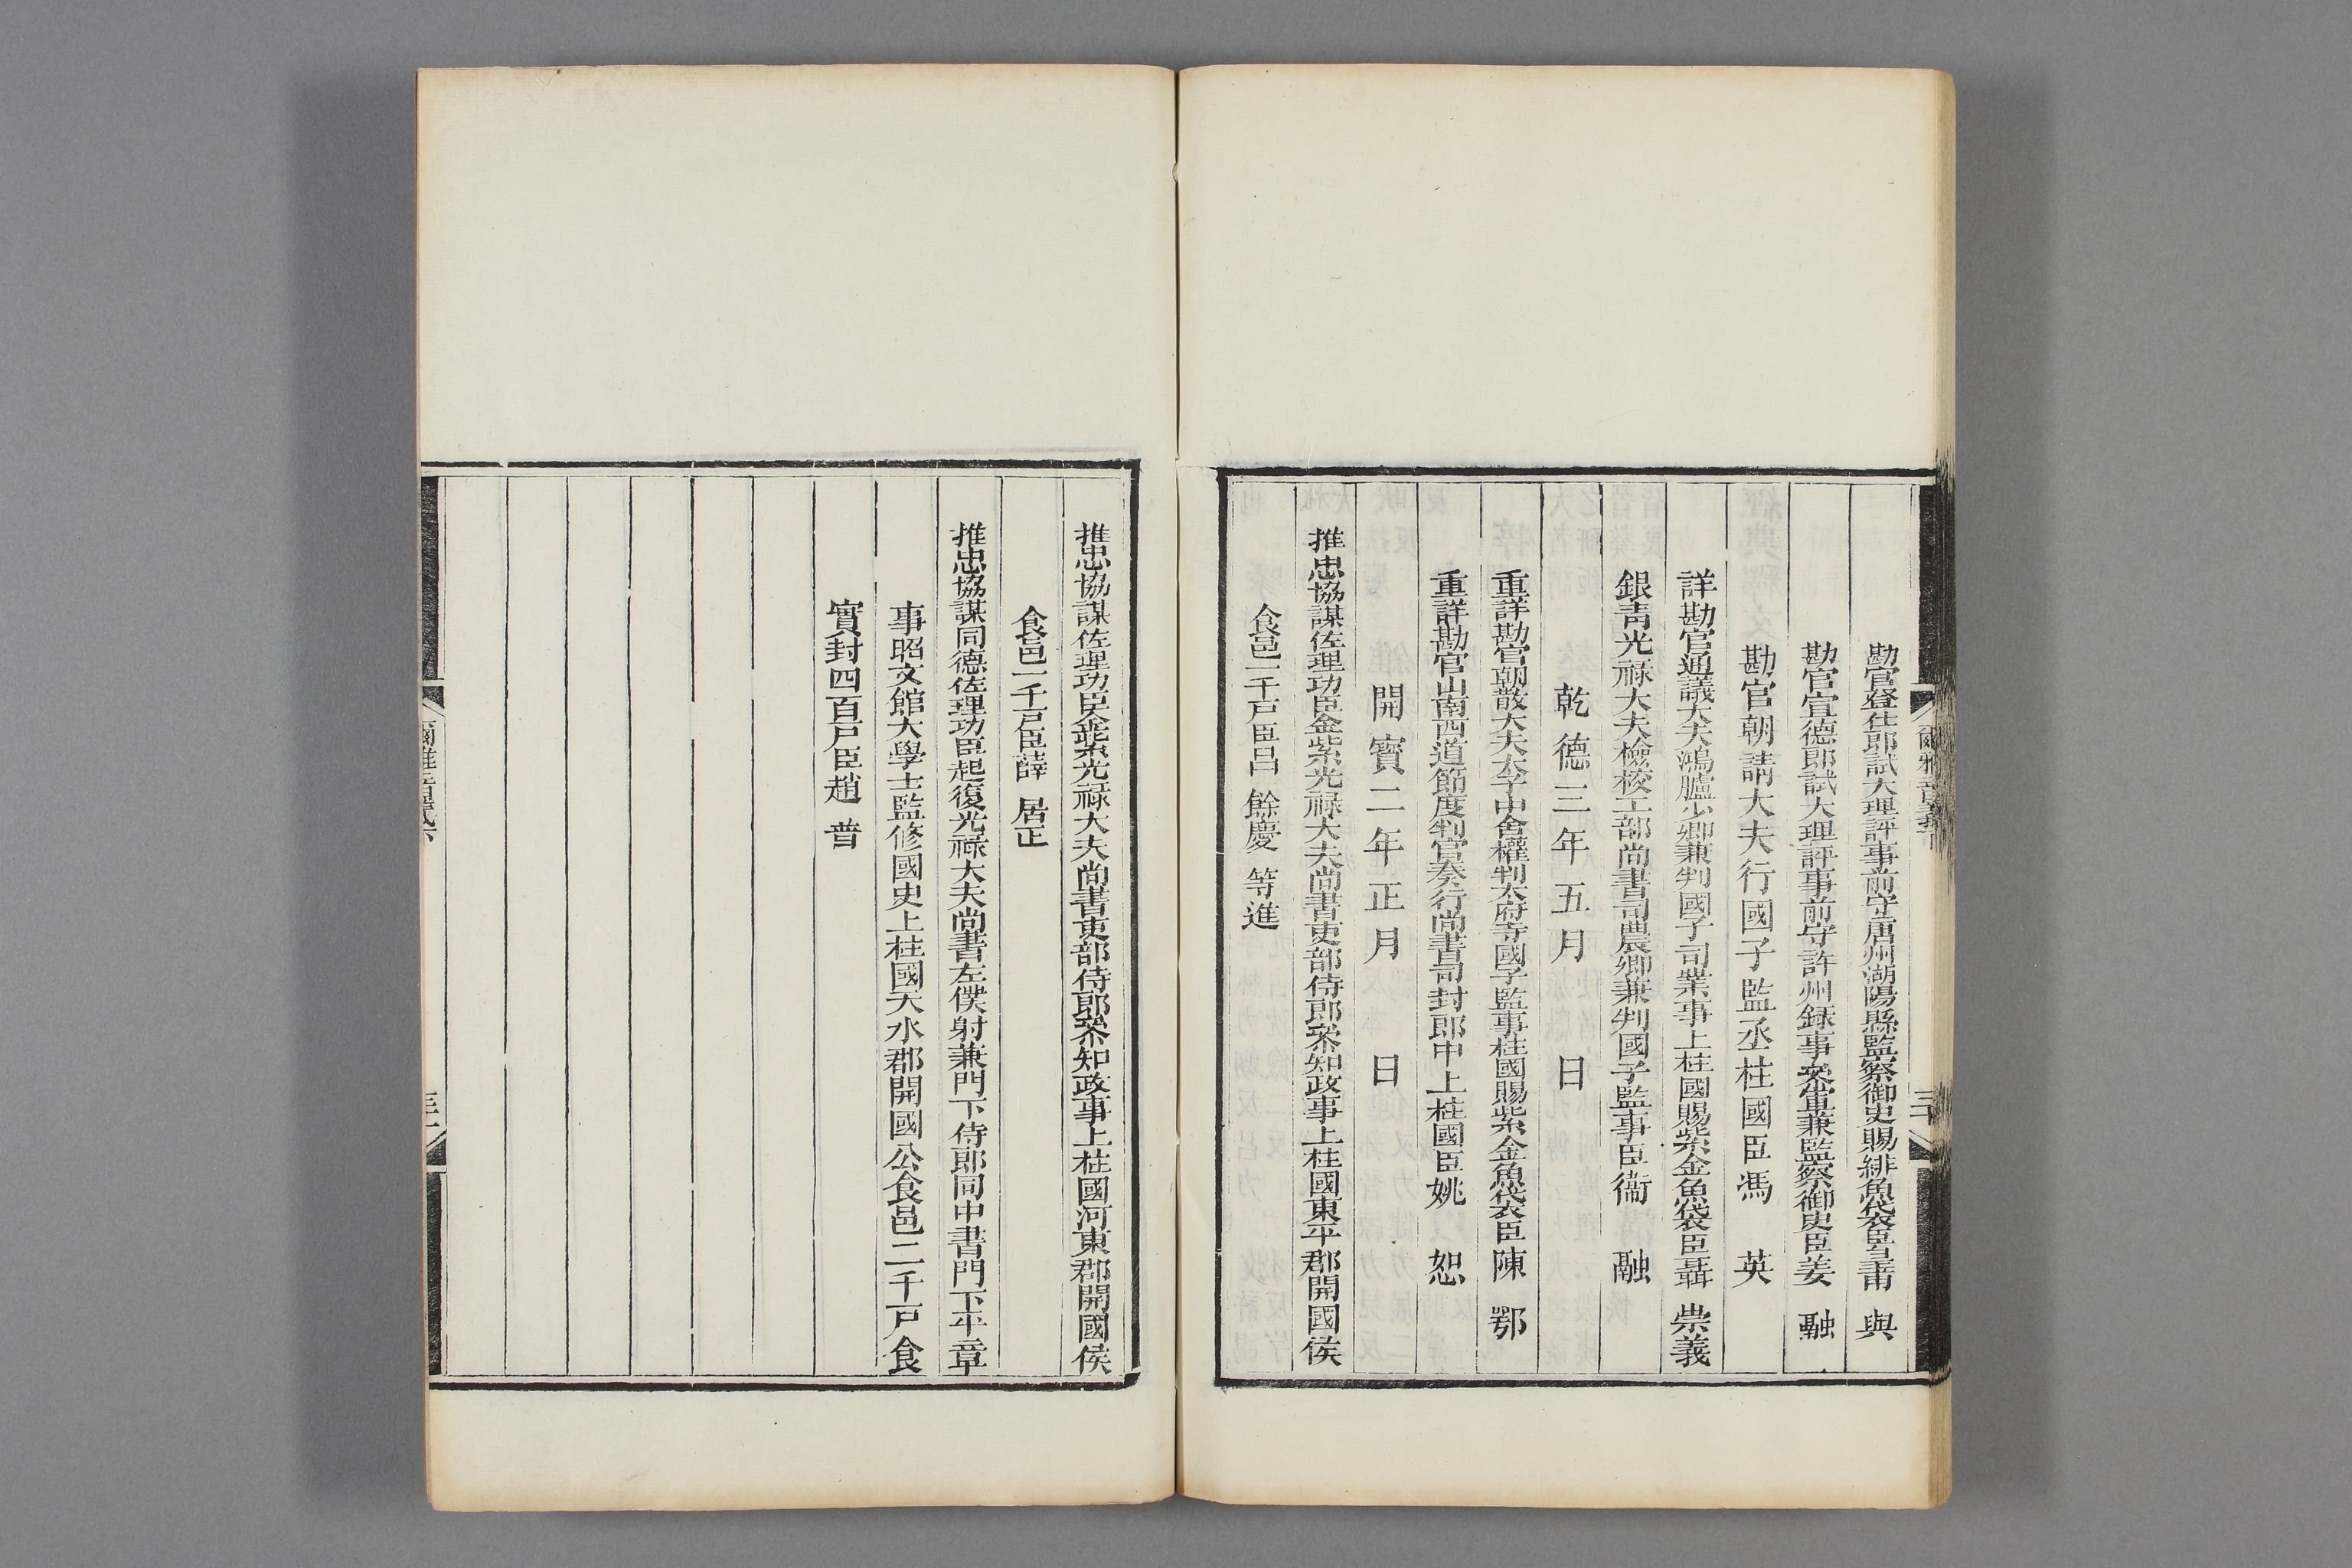 勘官登仕郎試大理評事前守唐州湖陽縣監察御史賜緋魚袋臣皇甫 與
勘官宣德郎試大理評事前守許州錄事參軍兼監察御史臣姜 融
勘官朝請大夫行國子監丞柱國臣馮 英
詳勘官通議大夫鴻臚少卿兼判國子司業事上柱國賜紫金魚袋臣聶 崇義
銀青光祿大夫檢校工部尚書司農卿兼判國子監事臣衞 融
乾德三年五月 日
重詳勘官朝散大夫太子中舍權判太府寺國子監事柱國賜紫金魚袋臣陳 鄂
重詳勘官山南西道節度判官奏行尚書司封郎中上柱國臣姚 恕
開寶二年正月 日
推忠協謀佐理功臣金紫光祿大夫尚書吏部侍郎叅知政事上柱國東平郡開國侯
食邑一千戸臣呂 餘慶 等進
爾雅音義下
三十
推忠協謀佐理功臣金紫光祿大夫尚書吏部侍郎叅知政事上柱國河東郡開國侯
食邑一千戸臣薛 居正
推忠協謀同德佐理功臣起復光祿大夫尚書左僕射兼門下侍郎同中書門下平章
事昭文館大學士監修國史上柱國天水郡開國公食邑二千戸食
實封四百戸臣趙 普